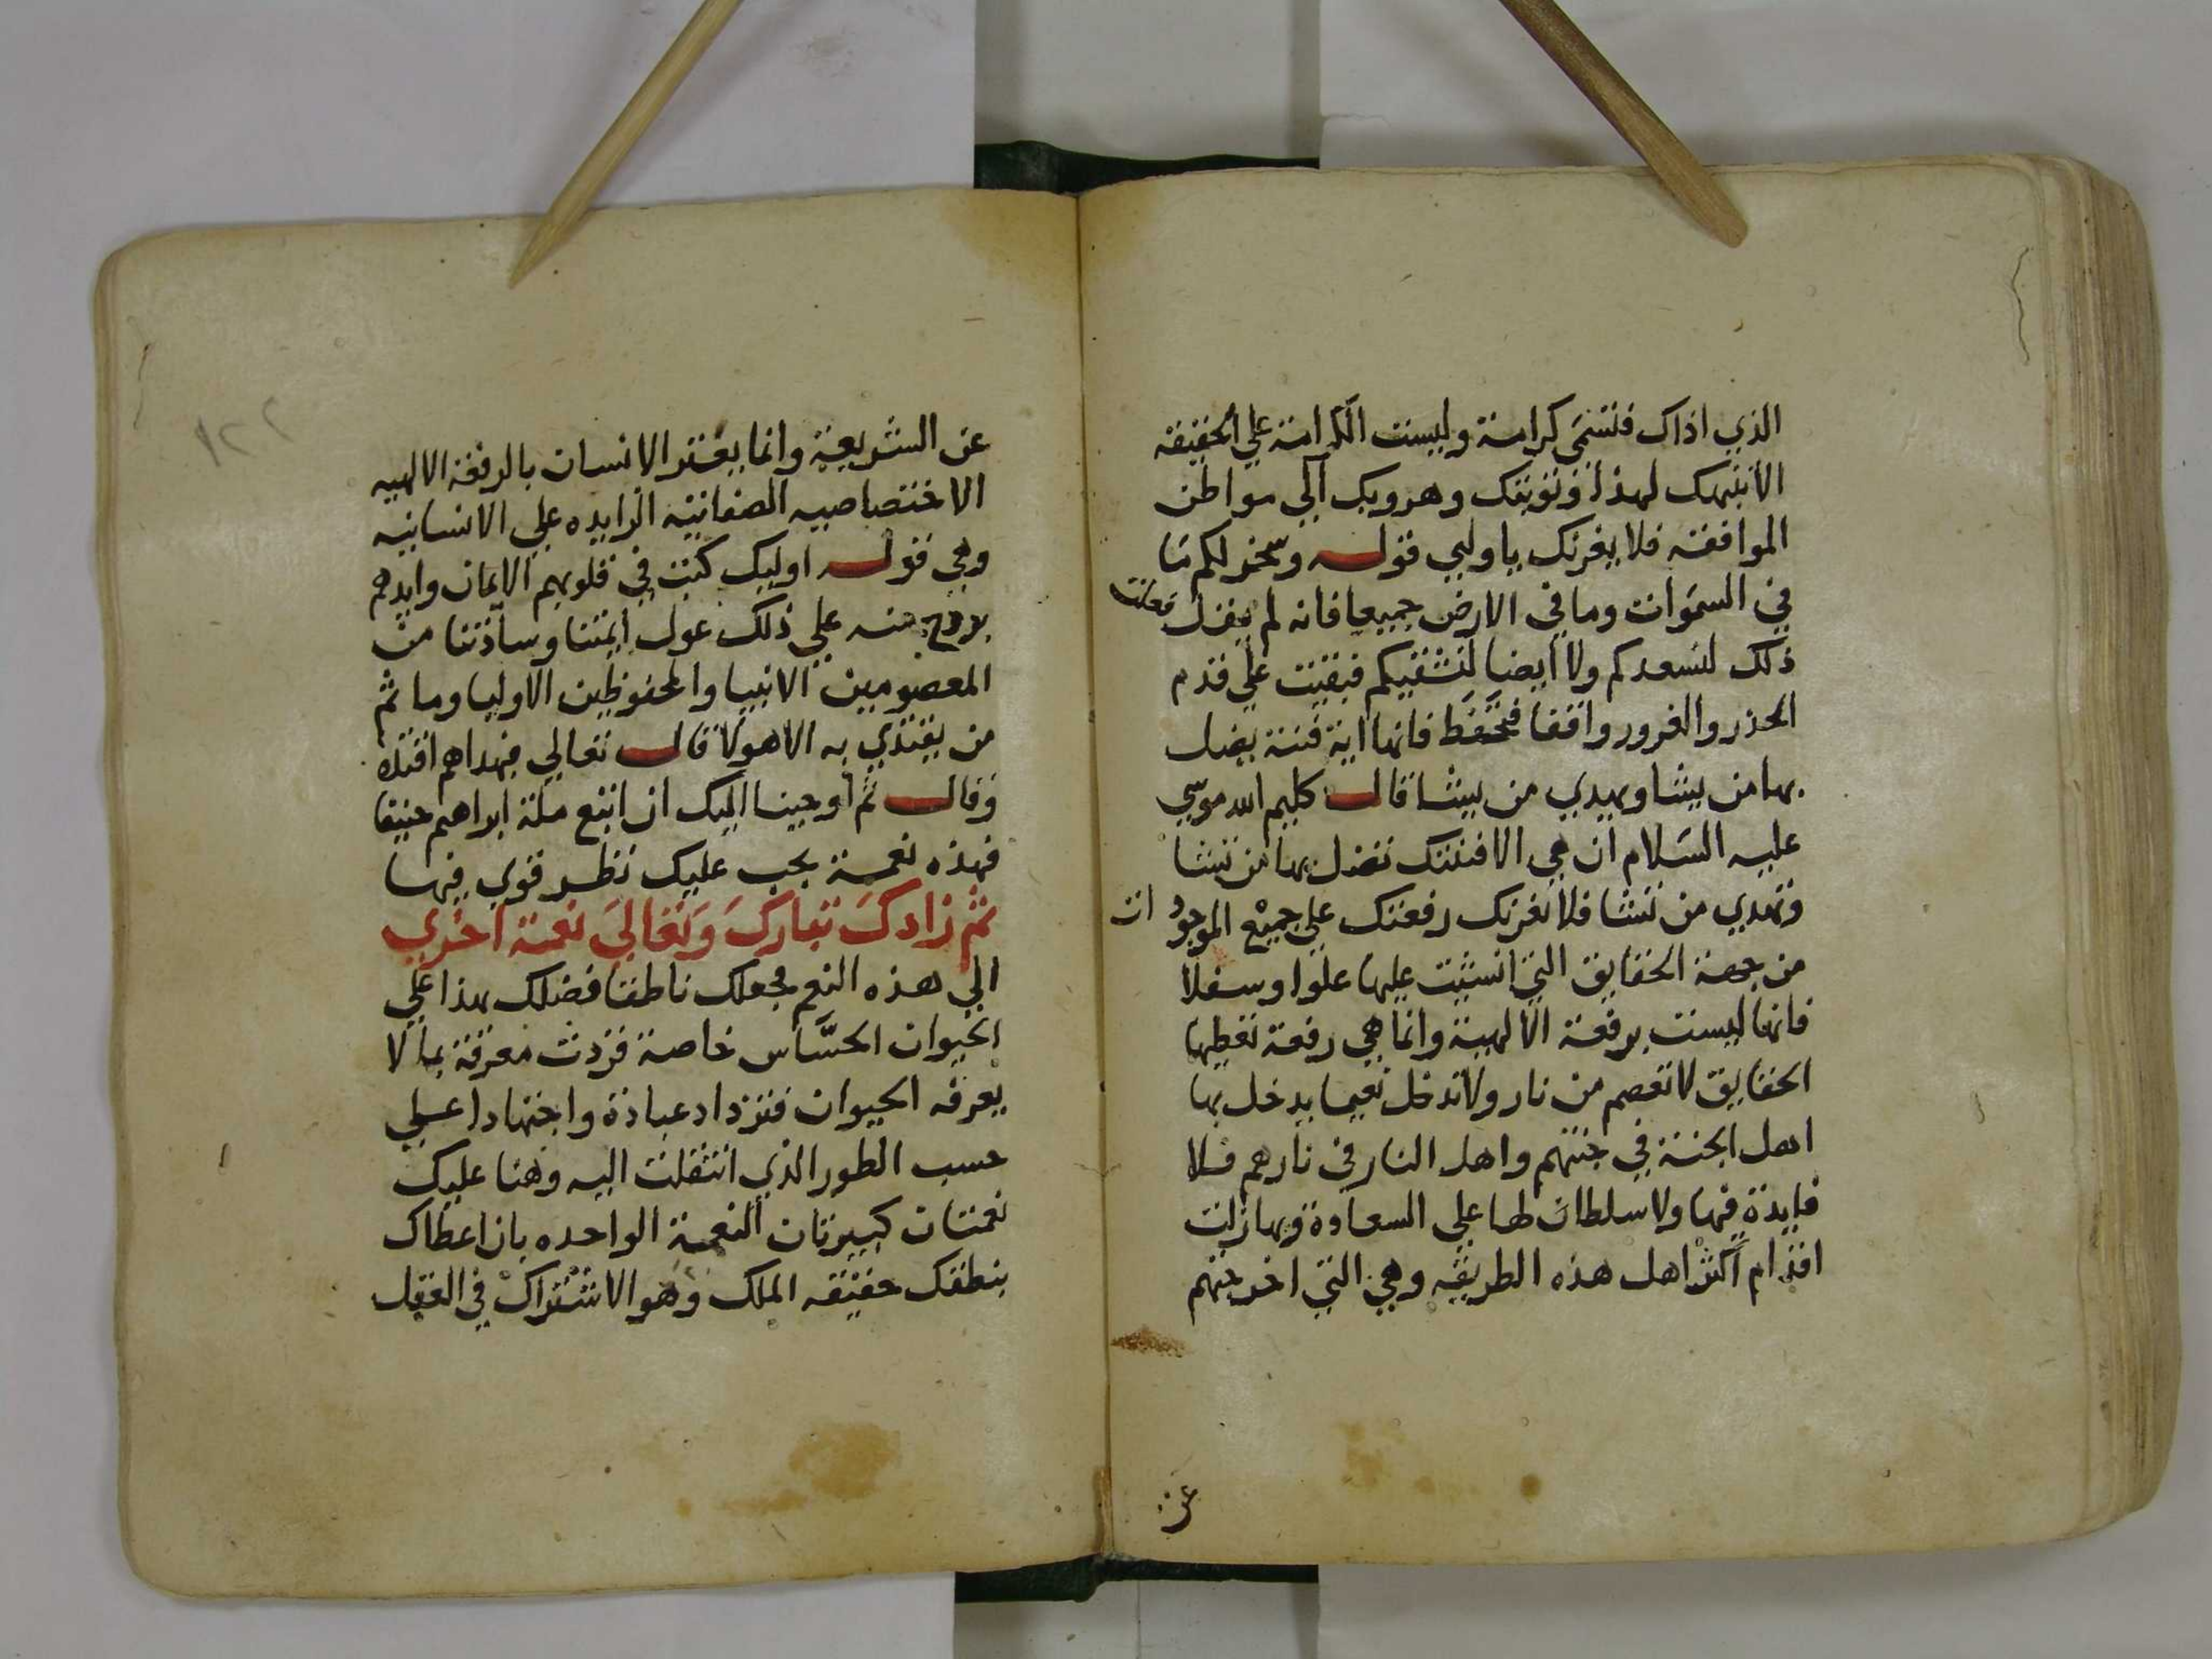 الذي اذاك فتسمى كرامة وليست الكرامة علي الحقيقه
الا تنبهك لهذا وتوبتك وهروبك الي مواطن
الموافقه فلا يغرنك ياوليي قوله وسخر لكم ما
في السموات وما في الارض جميعا فانه لم يقل فعلت
ذلك لنسعدكم ولا ايضا لنشقيكم فبقيت علي قدم
الحذر والغرور واقفا فتحفظ فانها اية فتنة يضل
بها من يشا ويهدي من يشا قال كليم الله موسي
عليه السلام ان هي الا فتنتك تضل بها من تشا
وتهدي من تشا فلا تغرنك رفعتك علي جميع الموجودات
من جهة الحقايق التي انشيت عليها علوا وسفلا
فانها ليست برفعة الالهية وانما هي رفعة تعطيها
الحقايق لا تعصم من نار ولا تدخل نعيما يدخل بها
اهل الجنة في جنتهم واهل النار في نارهم فلا
فايدة فيها ولا سلطان لها علي السعادة وبها زلت
اقدام اكثر اهل هذه الطريقه وهي التي اخرجتهم
عن
١٢٢
عن الشريعة وانما يعتز الانسان بالرفعة الالهيه
الاختصاصيه الصفاتية الزايده علي الانسانيه
وهي قوله اوليك كتب في قلوبهم الايمان وايدهم
بروح منه علي ذلك عول ايمتنا وسادتنا من
المعصومين الانبيا والمحفوظين الاوليا وما ثم
من يقتدي به الا هولا قال تعالي فبهداهم اقتده
وقال ثم اوحينا اليك ان اتبع ملة ابراهيم حنيفا
فهذه نعمة يجب عليك نظر قوي فيها
ثم زادك تبارك وتعالي نعمة اخري
الي هذه النعم فجعلك ناطقا ففضلك بهذا علي
الحيوان الحساس خاصة فزدت معرفة بما لا
يعرفه الحيوان فتزداد عبادة واجتهادا علي
حسب الطور الذي انتقلت اليه وهنا عليك
نعمتان كبيرتان النعمة الواحده بان اعطاك
بنطقك حقيقه الملك وهو الاشتراك في العقل